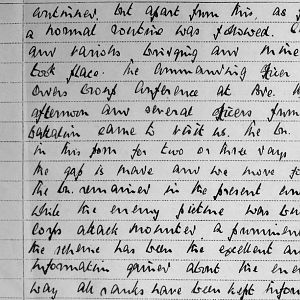 continued, but apart from this, as
a normal routine was followed.
and various bridging and mine
took place. The Commanding Officer
Orders Group Conference at Bde.
afternoon and several officers from
battalion came to visit us. The bn.
in this form for two or three days
the gap is made and we move
the bn. remained in the present
while the enemy picture was
corps attack mounted a
the scheme has been the excellent
information gained about the
way all ranks have been kept